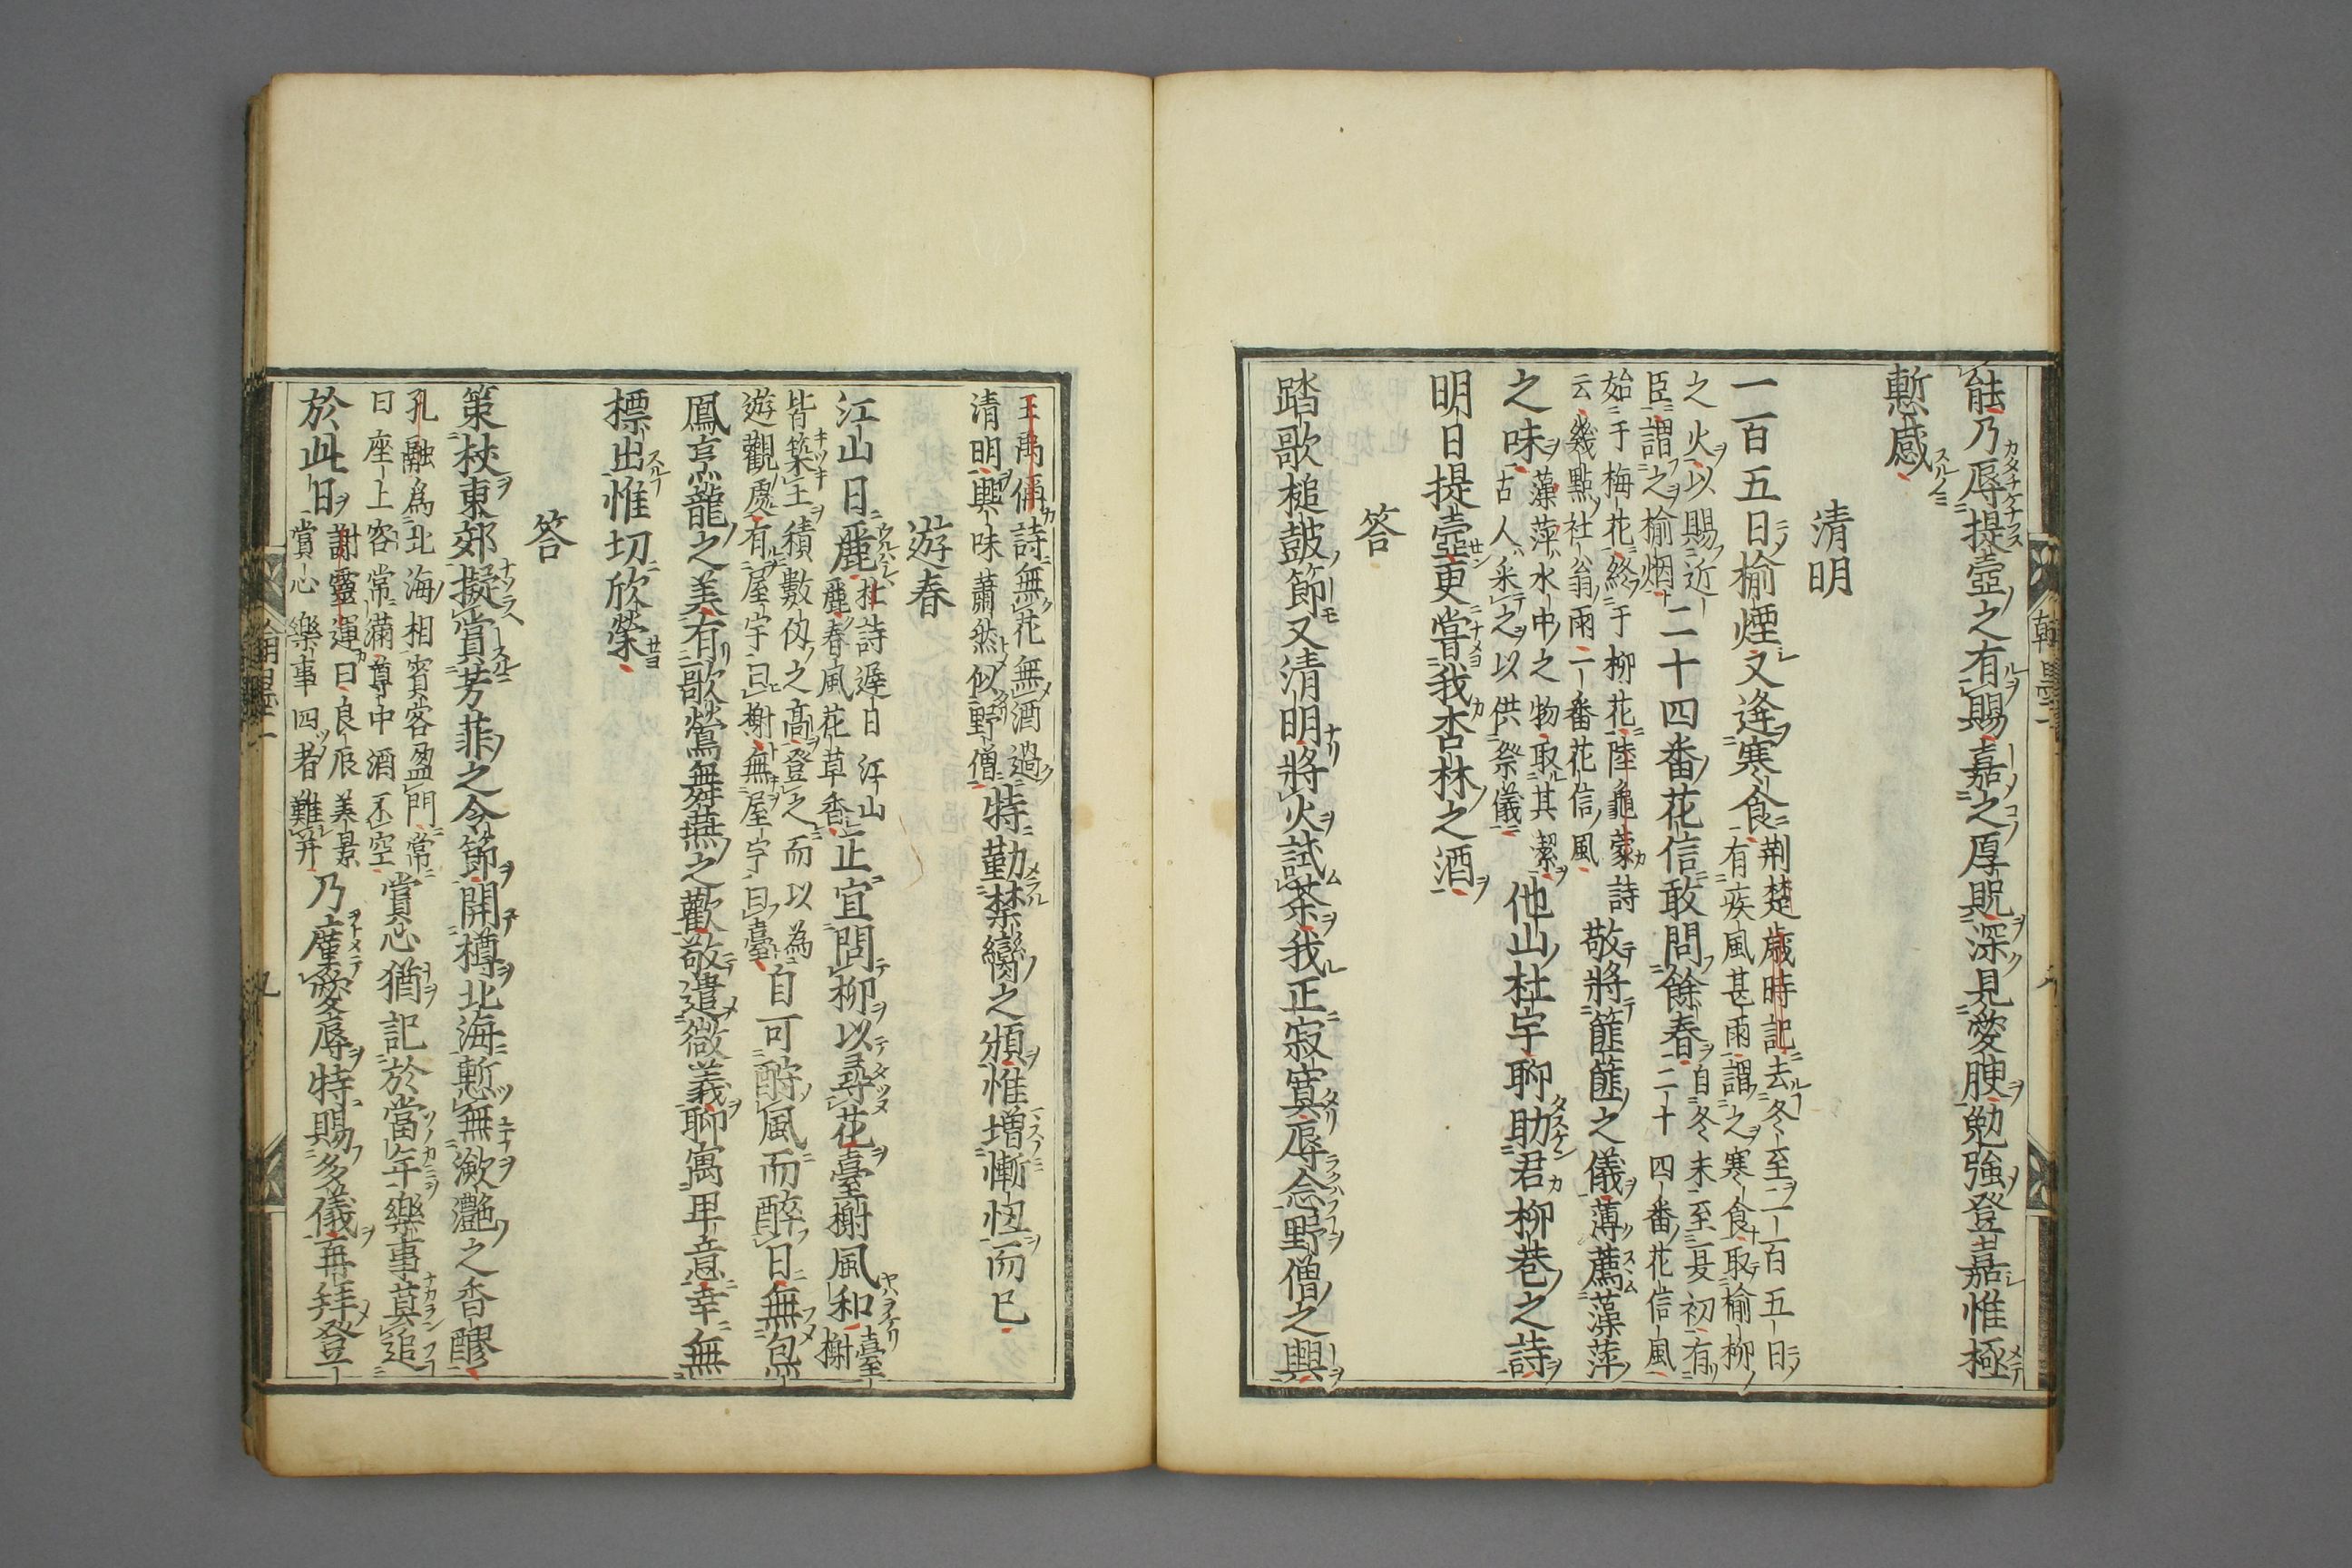 能乃辱提壺之有賜嘉之厚貺深見愛腴勉強登嘉惟極
慙感
清明
一百五日榆煙又逢寒食荆楚歳時記去冬至一百五日
有疾風甚雨謂之寒食取榆柳
之火以賜近
臣謂之榆烟二十四番花信敢問餘春自冬末至夏初有
二十四番花信風
始于梅花終于柳花陸龜蒙詩
云幾點社翁雨一番花信風敬將篚篚之儀薄薦藻萍
之味藻萍水中之物取其潔
古人采之以供祭儀他山杜宇聊助君柳巷之詩
明日提壺更嘗我杏林之酒
答
踏歌槌鼓節又清明將火試茶我正寂寞辱念野僧之興
王禹偁詩無花無酒過
清明興味蕭然似野僧特勤禁臠之頒惟增慚忸而已
遊春
江山日麗杜詩遲日江山
麗春風花草香正宜問柳以尋花臺榭風和臺
榭
皆築土積數仭之高登之而以為
遊觀處有屋宇曰榭無屋宇曰臺自可酧風而醉日無炰
鳳烹龍之美有歌鶯舞燕之歡敬遣微義聊寓卑意幸無
標出惟切欣榮
答
策杖東郊擬賞芳菲之令節開樽北海慙無瀲灎之香醪
孔融為北海相賓客盈門常
曰座上客常滿尊中酒不空賞心猶記於當年樂事莫追
於此日謝靈運曰良辰美景
賞心樂事四者難并乃廑愛辱特賜多儀再拜登